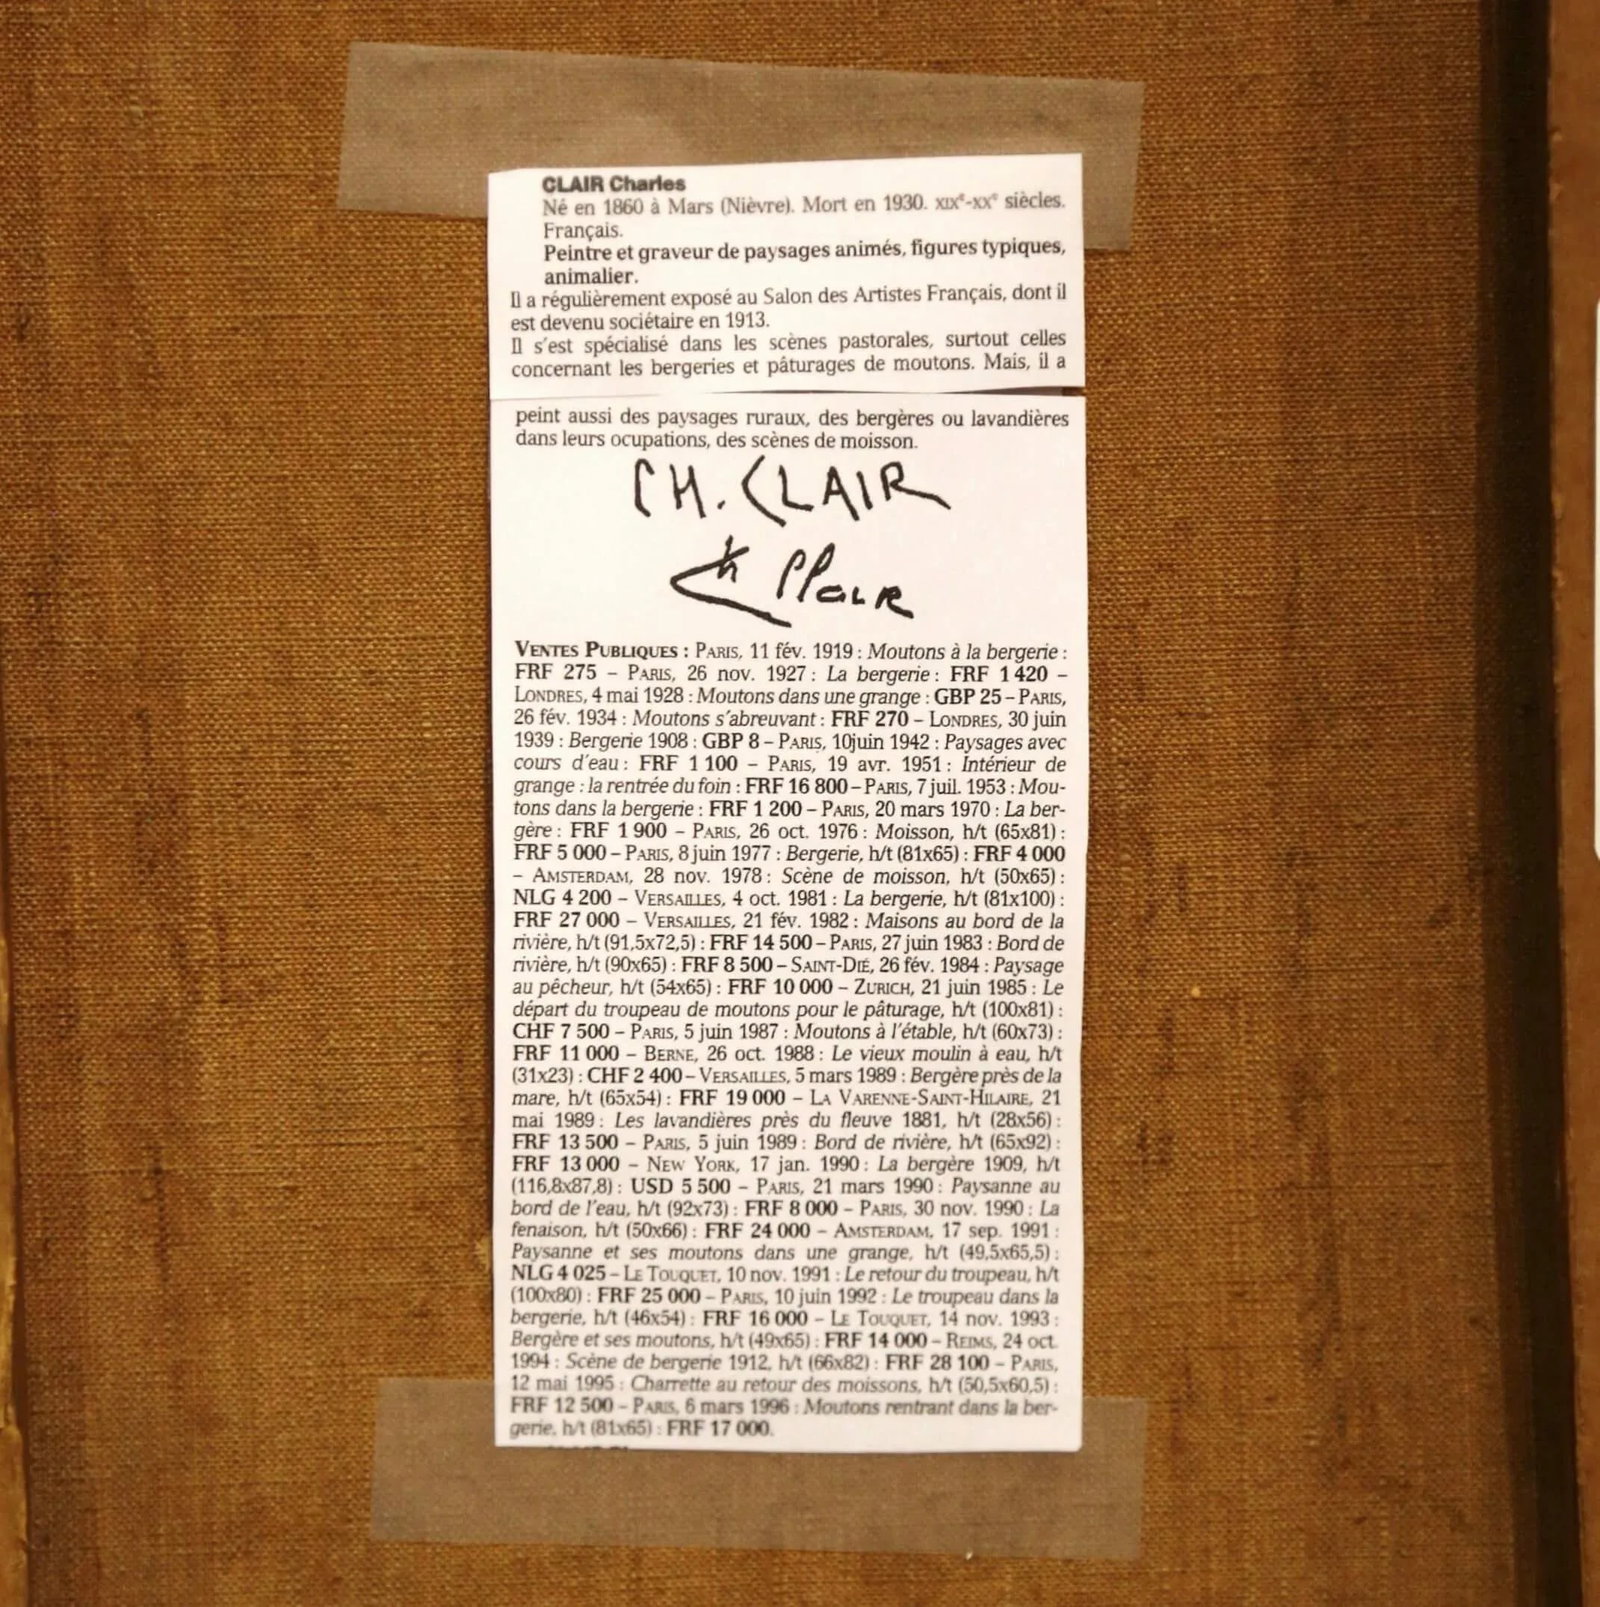 CLAIR Charles
Né en 1860 à Mars (Nièvre). Mort en 1930. XIXe-XXe siècles.
Français.
Peintre et graveur de paysages animés, figures typiques,
animalier.
Il a régulièrement exposé au Salon des Artistes Français, dont il
est devenu sociétaire en 1913.
Il s'est spécialisé dans les scènes pastorales, surtout celles
concernant les bergeries et pâturages de moutons. Mais, il a
peint aussi des paysages ruraux, des bergères ou lavandières
dans leurs ocupations, des scènes de moisson.
CH. CLAIR
Ch Clair
VENTES PUBLIQUES : PARIS, 11 fév. 1919 : Moutons à la bergerie :
FRF 275 – PARIS, 26 nov. 1927 : La bergerie : FRF 1 420 –
LONDRES, 4 mai 1928 : Moutons dans une grange : GBP 25 – PARIS,
26 fév. 1934 : Moutons s'abreuvant : FRF 270 – LONDRES, 30 juin
1939 : Bergerie 1908 : GBP 8 – PARIS, 10juin 1942 : Paysages avec
cours d'eau : FRF 1 100 – PARIS, 19 avr. 1951 : Intérieur de
grange : la rentrée du foin : FRF 16 800 – PARIS, 7 juil. 1953 : Mou-
tons dans la bergerie : FRF 1 200 – PARIS, 20 mars 1970 : La ber-
gère : FRF 1 900 – PARIS, 26 oct. 1976 : Moisson, h/t (65x81) :
FRF 5 000 – PARIS, 8 juin 1977 : Bergerie, h/t (81x65) : FRF 4 000
– AMSTERDAM, 28 nov. 1978 : Scène de moisson, h/t (50x65) :
NLG 4 200 – VERSAILLES, 4 oct. 1981 : La bergerie, h/t (81x100) :
FRF 27 000 – VERSAILLES, 21 fév. 1982 : Maisons au bord de la
rivière, h/t (91,5x72,5) : FRF 14 500 – PARIS, 27 juin 1983 : Bord de
rivière, h/t (90x65) : FRF 8 500 – SAINT-DIÉ, 26 fév. 1984 : Paysage
au pêcheur, h/t (54x65) : FRF 10 000 – ZURICH, 21 juin 1985 : Le
départ du troupeau de moutons pour le pâturage, h/t (100x81) :
CHF 7 500 – PARIS, 5 juin 1987 : Moutons à l'étable, h/t (60x73) :
FRF 11 000 – BERNE, 26 oct. 1988 : Le vieux moulin à eau, h/t
(31x23) : CHF 2 400 – VERSAILLES, 5 mars 1989 : Bergère près de la
mare, h/t (65x54) : FRF 19 000 – LA VARENNE-SAINT-HILAIRE, 21
mai 1989 : Les lavandières près du fleuve 1881, h/t (28x56) :
FRF 13 500 – PARIS, 5 juin 1989 : Bord de rivière, h/t (65x92) :
FRF 13 000 – NEW YORK, 17 jan. 1990 : La bergère 1909, h/t
(116,8x87,8) : USD 5 500 – PARIS, 21 mars 1990 : Paysanne au
bord de l'eau, h/t (92x73) : FRF 8 000 – PARIS, 30 nov. 1990 : La
fenaison, h/t (50x66) : FRF 24 000 – AMSTERDAM, 17 sep. 1991 :
Paysanne et ses moutons dans une grange, h/t (49,5x65,5) :
NLG 4 025 – LE TOUQUET, 10 nov. 1991 : Le retour du troupeau, h/t
(100x80) : FRF 25 000 – PARIS, 10 juin 1992 : Le troupeau dans la
bergerie, h/t (46x54) : FRF 16 000 – LE TOUQUET, 14 nov. 1993 :
Bergère et ses moutons, h/t (49x65) : FRF 14 000 – REIMS, 24 oct.
1994 : Scène de bergerie 1912, h/t (66x82) : FRF 28 100 – PARIS,
12 mai 1995 : Charrette au retour des moissons, h/t (50,5x60,5) :
FRF 12 500 – PARIS, 6 mars 1996 : Moutons rentrant dans la ber-
gerie, h/t (81x65) : FRF 17 000.